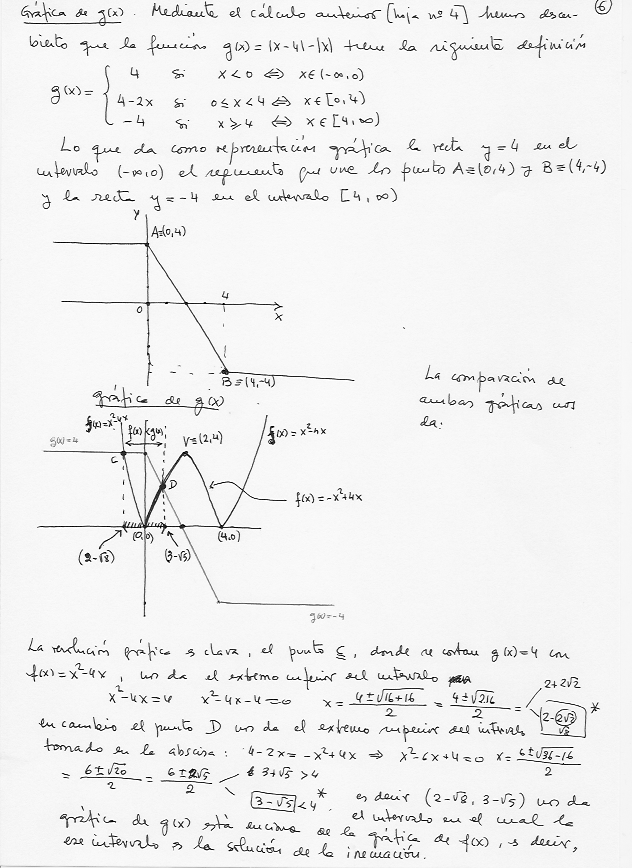 Gráfica de g(x). Mediante el cálculo anterior [hoja nº 4] hemos descu-
⑥
bierto que la función g(x) = |x-4|-|x| tiene la siguiente definición
g(x) = { 4 si x < 0 ⇔ x∈(-∞,0)
4-2x si 0 ≤ x < 4 ⇔ x∈[0,4)
-4 si x ≥ 4 ⇔ x∈[4,∞)
Lo que da como representación gráfica la recta y = 4 en el
intervalo (-∞,0) el segmento que une los punto A≡(0,4) y B≡(4,-4)
y la recta y = -4 en el intervalo [4,∞)
Y
A≡(0,4)
4
0
X
B≡(4,-4)
gráfica de g(x)
La comparación de
ambas gráficas nos
da:
f(x)=x²-4x
f(x)<g(x)
V≡(2,4)
f(x)=x²-4x
g(x)=4
C
D
f(x)=-x²+4x
(0,0)
(4,0)
(2-√8)
(3-√5)
g(x)=-4
La resolución gráfica es clara, el punto C, donde se cortan g(x)=4 con
f(x)=x²-4x, nos da el extremo inferior del intervalo
x²-4x=4 x²-4x-4=0 x = 4±√16+16 / 2 = 4±√2·16 / 2 = 2+2√2
2-2√2 *
√8
en cambio el punto D nos da el extremo superior del intervalo
tomado en la abscisa: 4-2x = -x²+4x ⇒ x²-6x+4=0 x = 6±√36-16 / 2
= 6±√20 / 2 = 6±2√5 / 2 3+√5 > 4
3-√5 < 4 * . es decir (2-√8, 3-√5) nos da
el intervalo en el cual la
gráfica de g(x) está encima de la gráfica de f(x), es decir,
ese intervalo es la solución de la inecuación.